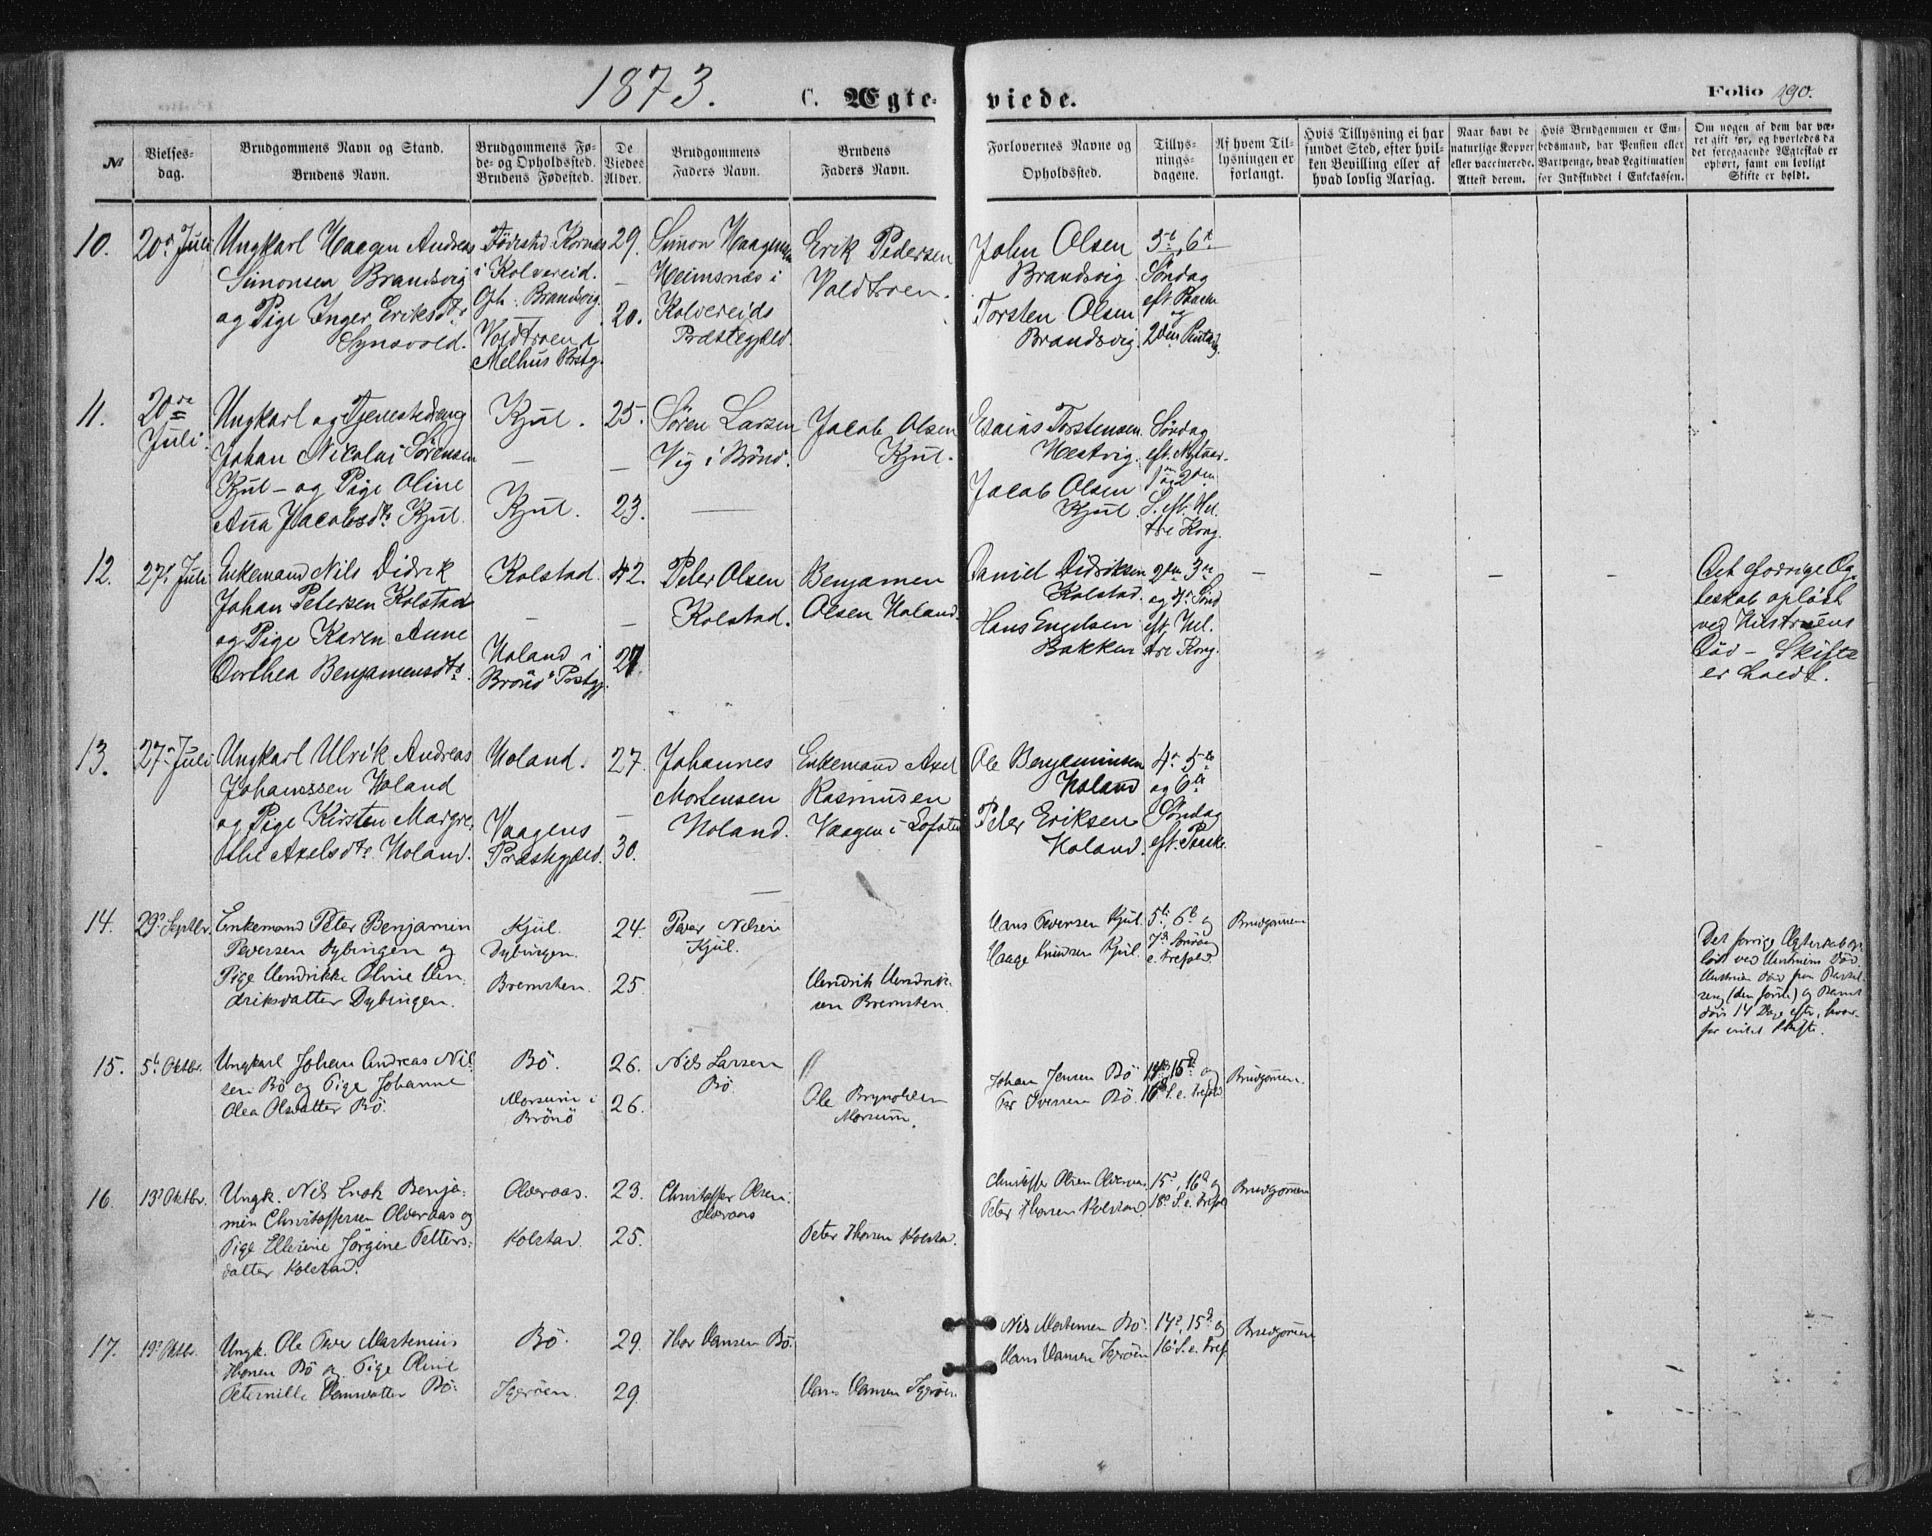 1873.
C. Ægte-
viede.
Folio 290.
№
Vielses-
dag.
Brudgommens Navn og Stand.
Brudens Navn.
Brudgommens Fø-
de- og Opholdssted.
Brudens Fødested.
De
Viedes
Alder.
Brudgommens
Faders Navn.
Brudens
Faders Navn.
Forlovernes Navne og
Opholdssted.
Tillys-
nings-
dagene.
Af hvem Til-
lysningen er
forlangt.
Hvis Tillysning ei har
fundet Sted, efter hvil-
ken Bevilling eller af
hvad lovlig Aarsag.
Naar havt de
naturlige Kopper
eller vaccinerede.
Attest derom.
Hvis Brudgommen er Em-
bedsmand, har Pension eller
Vartpenge, hvad Legitimation
for Indskuddet i Enkekassen.
Om nogen af dem har væ-
ret gift før, og hvorledes da
det foregaaende Ægteskab er
ophørt, samt om lovligt
Skifte er holdt.
10.
20de Juli
Ungkarl Haagen Andreas
Simonsen Brandsvig
og Pige Inger Eriksdtr
Fødested
i Kolvereid.
Oph: Brandsvig.
Voldtroen i
Melhus Præstg.
29.
20.
Simon Haagensen
Heimsnæs i
Kolvereids
Præstegjæld.
Erik Pedersen
Voldtroen.
John Olsen
Brandsvig.
Torsten Olsen
Brandsvig.
5te 6te
Søndag
eft. Paaske
og
2den Pintsdg.
11.
20de
Juli.
Ungkarl og Tjenestedreng
Johan Nikolai Sørensen
Kjul - og Pige Oline
Anna Jacobsdtr Kjul.
Kjul.
Kjul.
25.
23.
Søren Larsen
Vig i Brönö.
Jacob Olsen
Kjul.
Esaias Torstensen
Hestvig.
Jacob Olsen
Kjul.
Søndag
eft. Nytaar.
1ste og 2den
S. eft. Hel.
tre Kong.
12.
27de Juli
Enkemand Nils Didrik
Johan Petersen Kolstad
og Pige Karen Anne
Dorthea Benjamensdtr.
Kolstad.
Holand i
Brönö Præstgj.
42.
27
Peter Olsen
Kolstad.
Benjamen
Olsen Holand.
Daniel Didriksen
Kolstad.
Hans Engelsen
Bakken
2den 3die
og 4de Sönd.
eft. Hel.
tre Kong.
Det forrige Æg-
teskab opløst
ved Hustruens
Død - Skifte
er holdt.
13.
27de Juli
Ungkarl Ulrik Andreas
Johanssen Holand
og Pige Kirsten Margre-
the Axelsdtr. Holand.
Holand.
Vaagens
Præstegjæld.
27.
30.
Johannes
Mortensen
Holand.
Enkemand Axel
Rasmusen
Vaagen i Lofoten
Ole Benjaminsen
Holand
Peter Eriksen
Holand.
4de 5te
og 6te
Søndag
eft. Paaske.
14.
29de Septbr.
Enkemand Peter Benjamin
Pedersen Dybingen og
Pige Hendrikke Oline Hen-
driksdatter Dybingen.
Kjul.
Dybingen.
Bremsten.
24.
25.
Peder Nilsen
Kjul.
Hendrik Hendrik-
sen Bremsten
Hans Iversen Kjul.
Haage Knudsen Kjul.
5te, 6te og
7de Søndag
e. Trefold.
Brudgommen
Det forrige Ægteskab op-
løst ved Hustruens Død.
(den første) og Barnet
døde 14 Dage efter, hvor-
for intet Skifte.
15.
5te Oktbr.
Ungkarl Johan Andreas Nil-
sen Bö og Pige Johanne
Olea Olsdatter Bö.
Bö.
Horsum i
Brönö
26.
26.
Nils Larsen
Bö
Ole Brynildsen
Horsum.
Johan Jensen Bö
Per Iversen Bö.
14de, 15de og
16de S. e. Trefold.
Brudgommen.
16.
13de Oktbr.
Ungk. Nils Enok Benja-
min Christoffersen Olderaas og
Pige Ellesine Jørgine Petters-
datter Kolstad.
Olderaas.
Kolstad.
23.
25.
Christoffer Olsen
Olderaas
Peter Thorsen Kolstad.
Christoffer Olsen Olderaas
Peter Thorsen Kolstad
15de, 16de og
18de S. e. Trefold
Brudgommen
17.
19de Oktbr.
Ungk. Ole Peder Martenius
Thorsen Bö og Pige Oline
Peternille Hansdatter Bö.
Bö.
Igerøen.
29.
29.
Thor Hansen Bö.
Hans Hansen Igerøen
Nils Mortensen Bö
Hans Hansen Igerøen
14de, 15de og
16de S. e. Tref.
Brudgommen